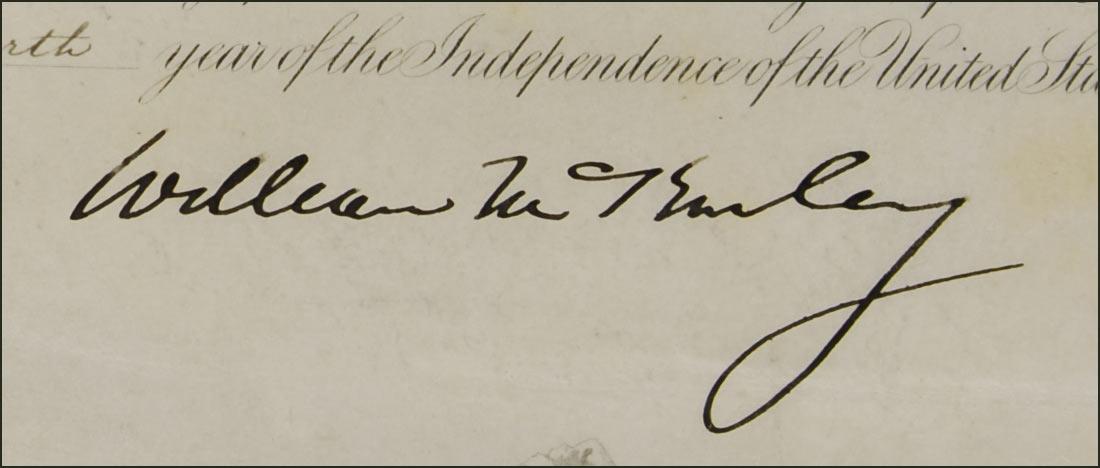 rth year of the Independence of the United Sta
William McKinley